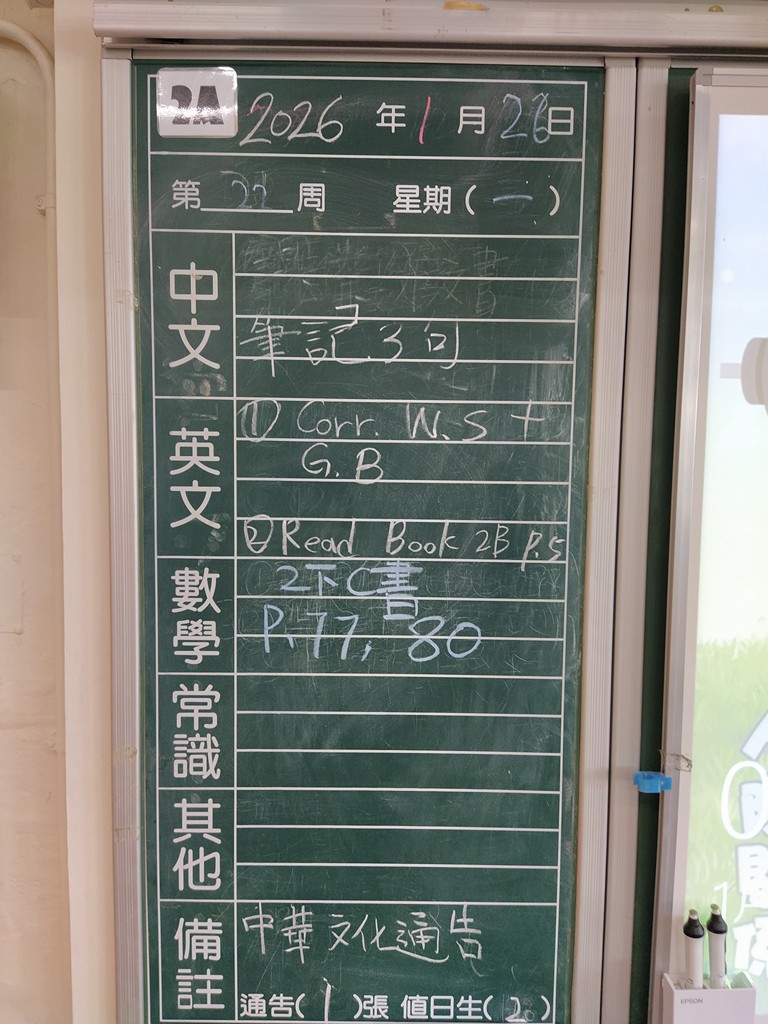 2A 2026 年 1 月 26 日
第 22 周 星期 ( 一 )
中文
筆記 3 句
英文
① Corr. W.S +
G.B
② Read Book 2B P.5
數學
2下C書
P.77, 80
常識
其他
備註
中華文化通告
通告( 1 )張 值日生( 2 )
EPSON